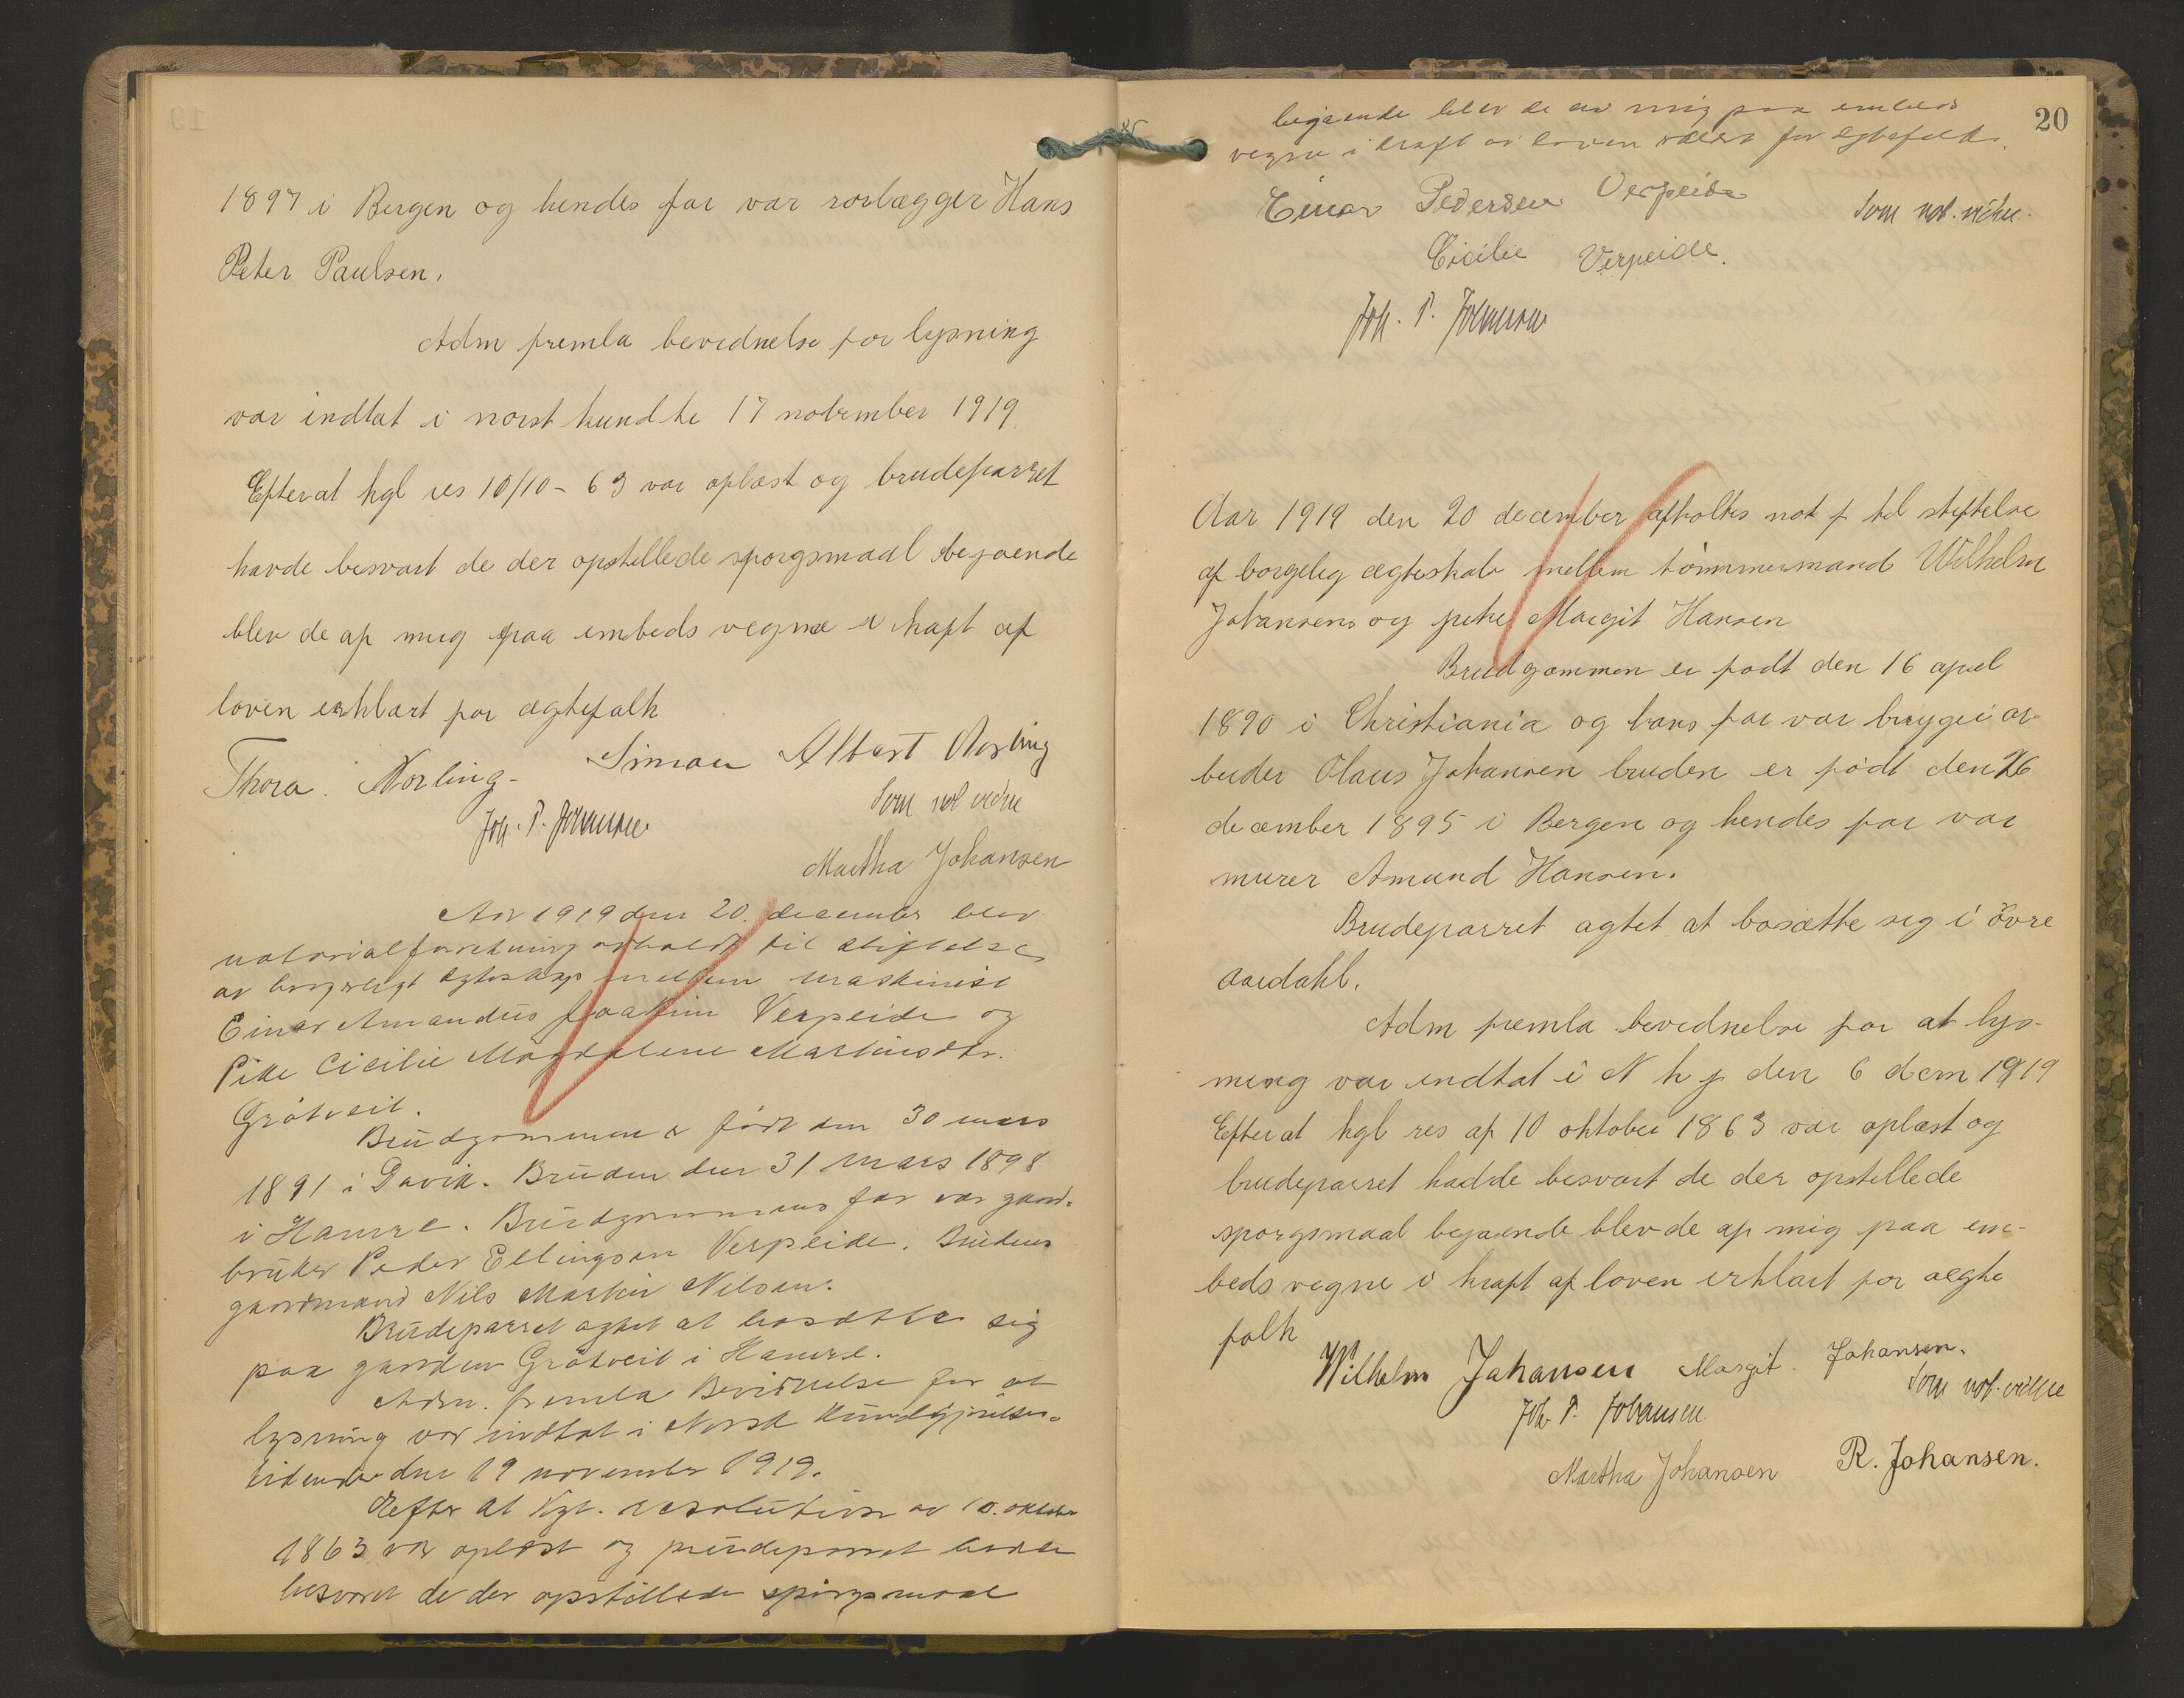 1897 i Bergen og hendes far var rorlægger Hans
Peter Paulsen.
Adm fremla bevidnelse for lysning
var indtat i norsk kund te 17 november 1919
Efter at kgl res 10/10 - 63 var oplæst og brudeparret
havde besvart de der opstillede sporgsmaal bejaende
blev de af mig paa embeds vegne i kraft af
loven erklært for ægtefalk
Thora Norling - Simon Albert Norling
Joh. P. Johansen Som not vidne
Martha Johansen
Aar 1919 den 20. december blev
notarialforretning avholdt til stiftelse
av borgerligt egteskap mellem maskinist
Einar Amandus Joakim Verpeide og
Pike Cicilie Magdalene Martinsdtr.
Gråtveit.
Brudgommen er født den 30 mars
1891 i Davik. Bruden den 31 mars 1898
i Hamre. Brudgommens far var gaard-
bruker Peder Ellingsen Verpeide. Brudens
gaardmand Nils Martin Nilsen.
Brudeparret agtet at bosætte sig
paa gaarden Gråtveit i Hamre.
Adm. fremla Bevidnelse for at
lysning var indtat i Norsk Kundgjørelses-
tidende den 19 november 1919.
Efter at Kgl. resolution av 10. oktober
1863 var oplæst og brudeparret hadde
besvaret de der opstillede spørgsmaal
20
bejaende blev de av mig paa embeds
vegne i kraft av loven erklært for egtefolk.
Einar Pedersen Verpeide Som not. vidne.
Cicilie Verpeide.
Joh. P. Johansen
Aar 1919 den 20 december afholtes not f til stiftelse
af borgelig ægteskab mellem tömmermand Wilhelm
Johansen og pike Margit Hansen
Brudgommen er født den 16 april
1890 i Christiania og hans far var bryggeiar-
beider Olaus Johansen bruden er födt den 26
december 1895 i Bergen og hendes far var
murer Amund Hansen.
Brudeparret agtet at bosætte sig i övre
aardahl.
Adm fremla bevidnelse for at lys-
ning var indtat i N k j den 6 dem 1919
Efter at kgl res af 10 oktober 1863 var oplæst og
brudeparret hadde besvart de der opstillede
sporgsmaal bejaende blev de af mig paa em-
beds vegne i kraft af loven erklært for ægte
falk
Wilhelm Johansen Margit Johansen.
Joh P. Johansen Som not. vidne
Martha Johansen R. Johansen.